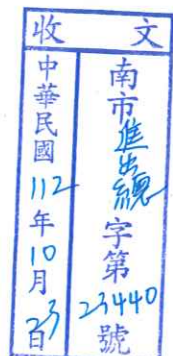 收文
南市進出總字第23440號
中華民國112年10月23日